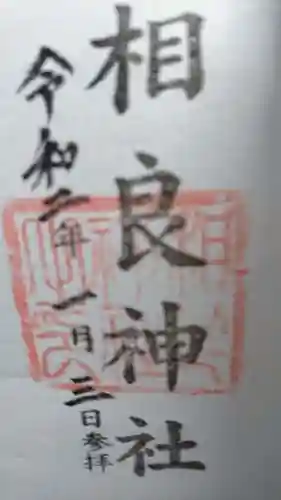 相良神社
令和二年一月三日参拝